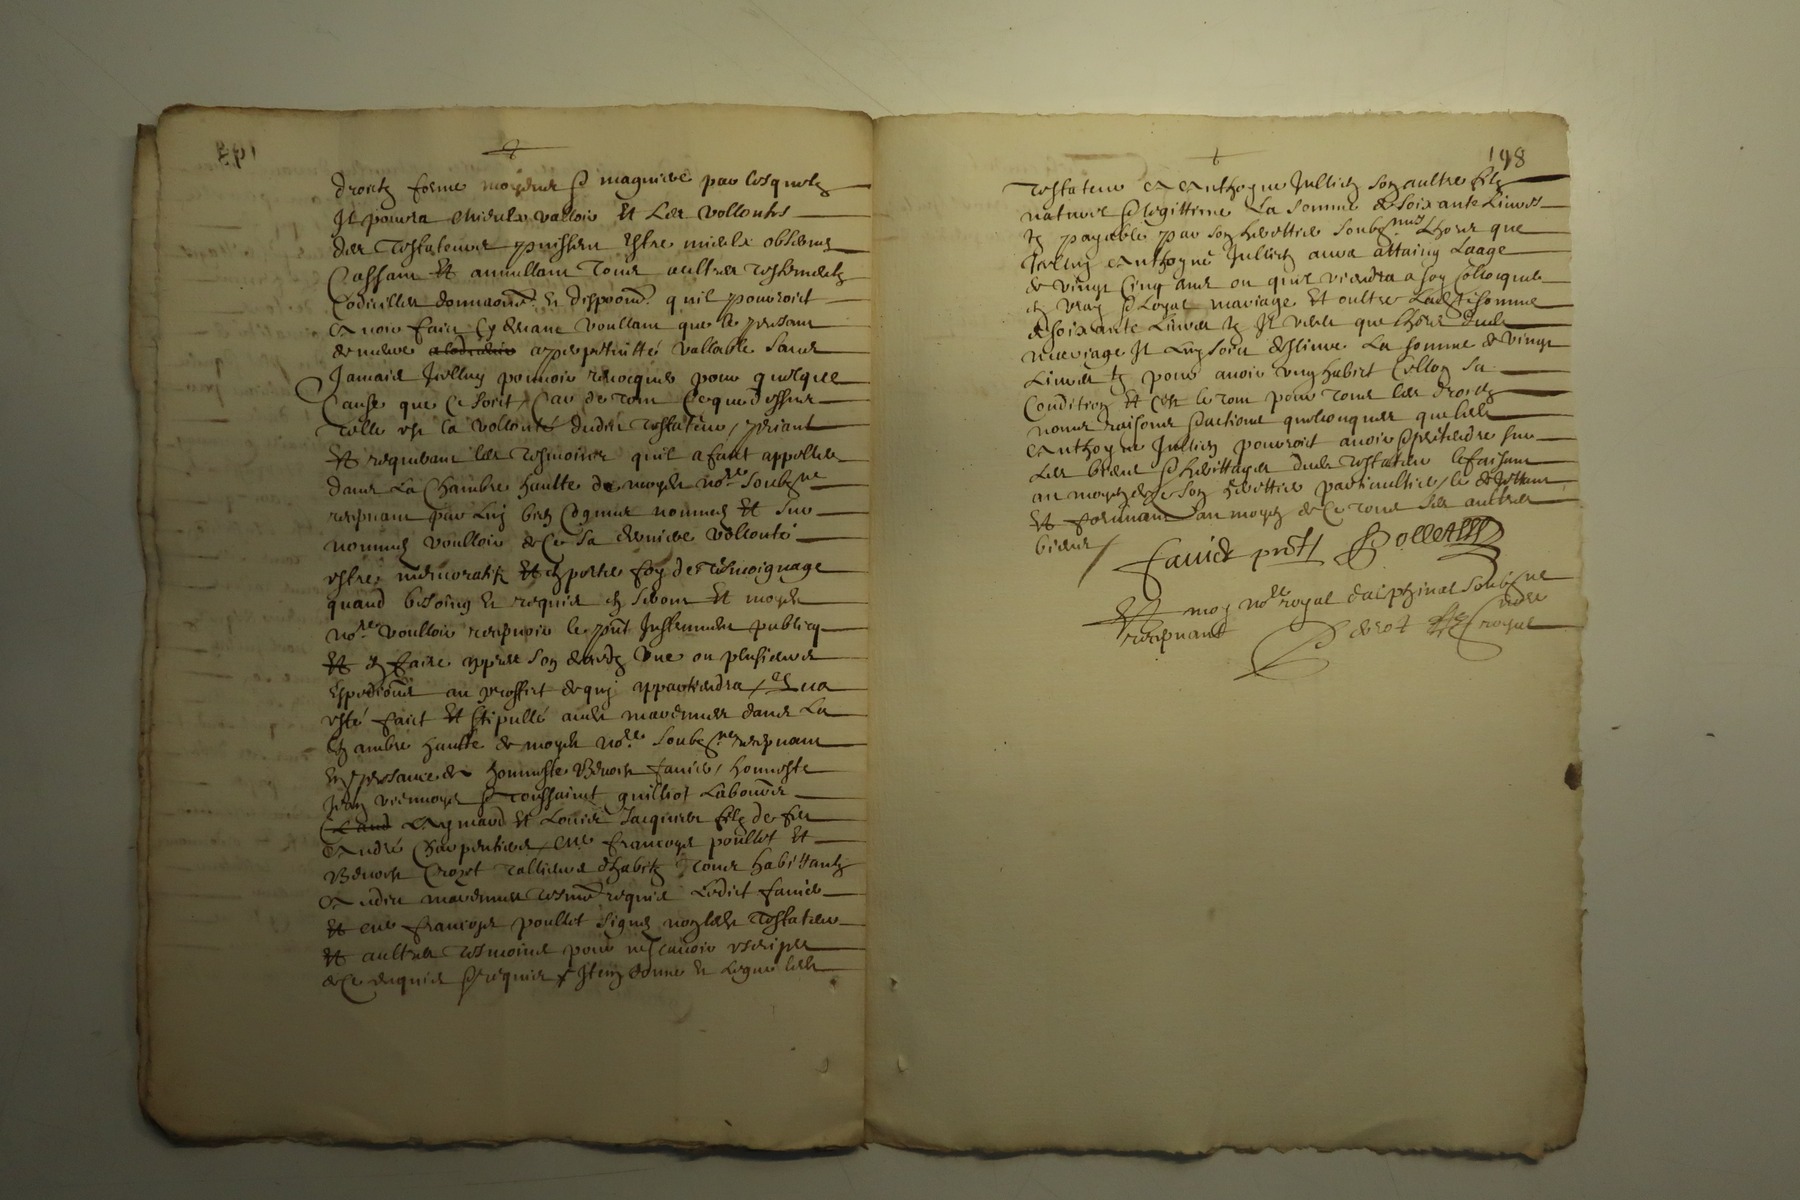 droictz forme moyens et magniere par lesquelz
Il pourra mieulx valloir Et Les vollontes
des Testateurs puissent Estre mieulx observes
Cassant Et annullant Tous aultres Testamentz
Codicilles donnaons Et dispoons quil pourroict
avoir faict Cy devant voullant que le present
demeure a perpettuitté vallable sans
Jamais Icelluy pouvoir revocquer pour quelque
Cause que Ce soict / Car de tout Ce que dessus
Telle est la vollonté dudict Testateur / priant
Et requerant les Tesmoings quil a faict appeller
dans La Chambre haulte de moydt nore soubzne
recepvant par Luy bien Cogneus nommes Et sur
nommes voulloir de Ce sa derniere vollonté
estre memoratifz Et en porter foy de Tesmoignage
quand besoing Et requis en seront Et moydt
nore voulloir recepvoir le pnt Instrument publicq
Et en faire apprès son decedz Une ou plusieurs
Expedions au proffict de qui appartiendra /
esté faict Et stipullé audt marennes dans La
Chambre haulte de moydt nore soubzne recepvant
En presance de honneste Benoist Favier / honneste
Jean viennoys et Toussainct guilliot Labours
Aymard Et Louis Jacquier filz de feu
André Charpentier / me Francoys poullet Et
Benoist Crozet Tallieurs dhabitz Tous habittantz
Audict marennes Tesmoings requis Ledict favier
Et me francoys poullet signes non ledt Testateur
Et aultres Tesmoings pour ne scavoir escripre
de Ce enquis et requis / Item donne Et Legue ledt
198
Testateur A Anthoyne Jullien son aultre filz
naturel et legittime La somme de soixante Livres
tz payable par son herettier soubzne Lhors que
Icelluy Anthoyne Jullien aura attaing Laage
de vingt Cinq ans ou quil viendra a soy Collocquer
en vray et Loyal mariage Et oultre Ladte somme
de soixante Livres tz Il veult que Lhors dudt
mariage Il Luy soict deslivre La somme de vingt
Livres tz pour avoir ung habict sellon sa
Condition Et Cest le tout pour tous les droictz
noms raisons et actions quelconques que ledt
Anthoyne Jullien pourroict avoir et pretendre sur
Les biens et herittages dudt Testateur le faisant
au moyen de Ce son herettier particullier / le dejettant
Et forcluant au moyen de Ce tous ses aultres
biens /
Favier pnt Pollet
Et moy nore royal dalphinal soubzne
recepvant